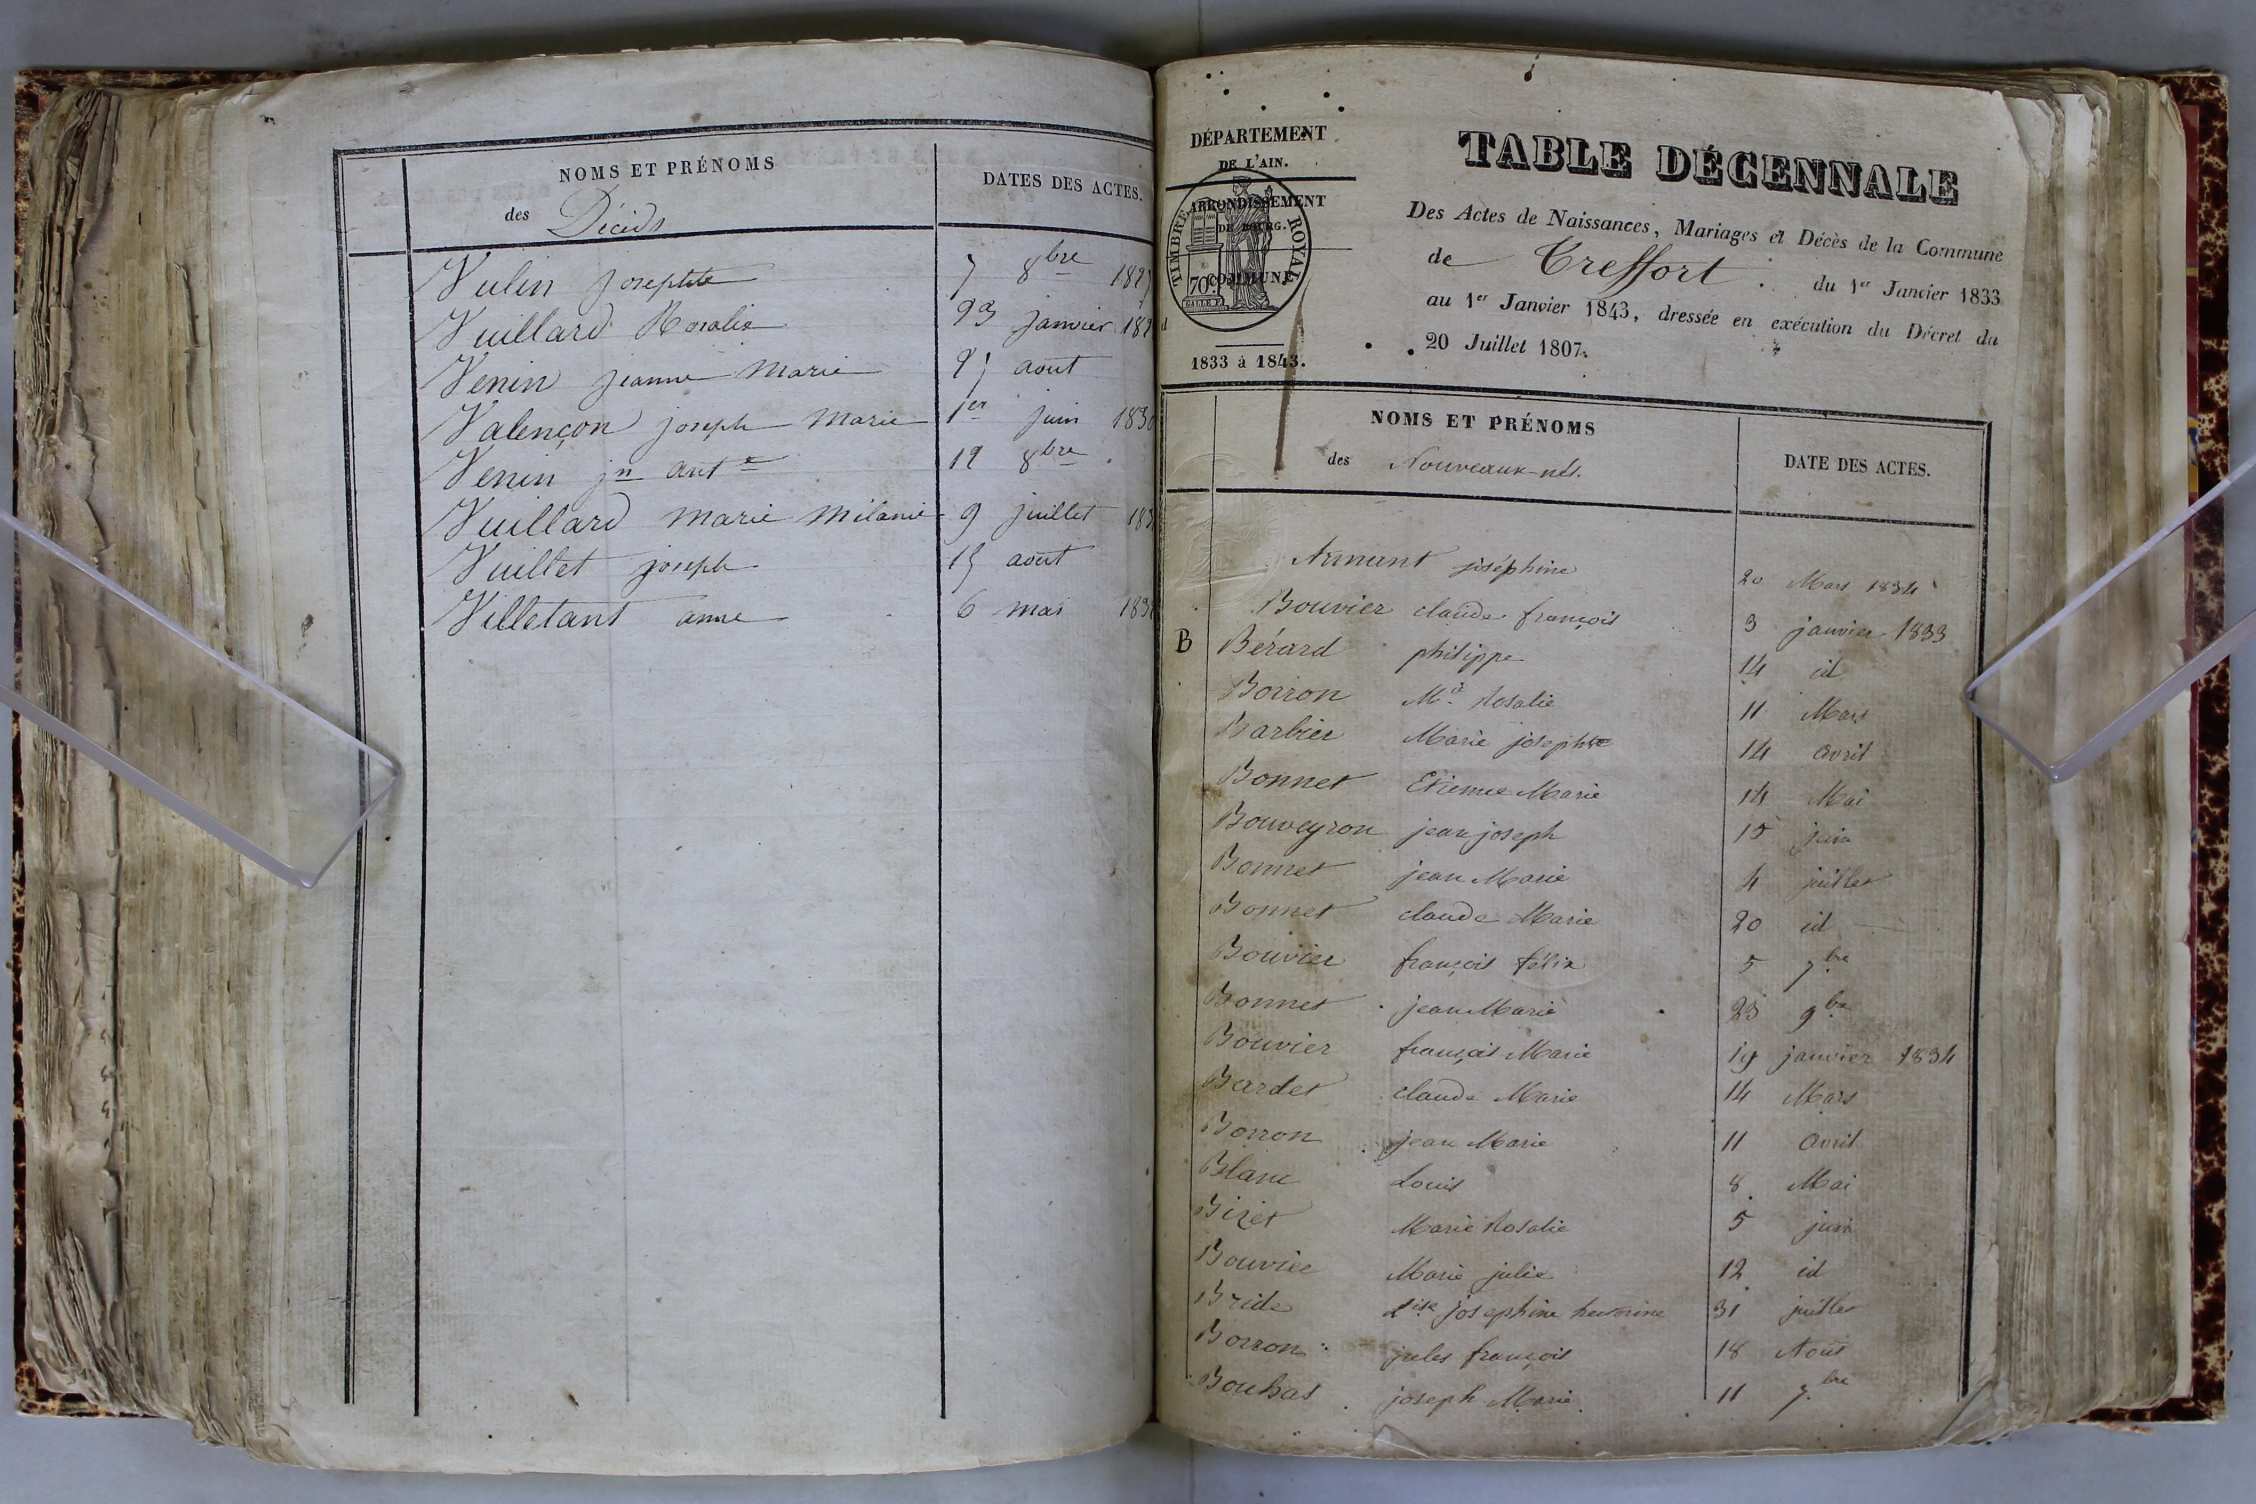 NOMS ET PRÉNOMS
des Décédés
DATES DES ACTES.
Vulin josephte 7 8bre 182
Vuillard Rosalie 23 janvier 182
Venin jeanne Marie 27 aout
Valençon joseph Marie 1er juin 183
Venin jn ante 12 8bre
Vuillard Marie Mélanie 9 juillet 183
Vuillet joseph 15 aout
Villetant anne 6 mai 183
DÉPARTEMENT
DE L'AIN.
ARRONDISSEMENT
DE BOURG.
COMMUNE
d
TIMBRE ROYAL
70c
1833 à 1843.
TABLE DÉCENNALE
Des Actes de Naissances, Mariages et Décès de la Commune
de Treffort du 1er Janvier 1833
au 1er Janvier 1843, dressée en exécution du Décret du
20 Juillet 1807.
NOMS ET PRÉNOMS
des Nouveaux-nés.
DATE DES ACTES.
Armant joséphine 20 Mars 1834
Bouvier claude françois 3 janvier 1833
B Bérard philippe 14 id
Borron Me Rosalie 11 Mars
Barbier Marie josephte 14 avril
Bonnet Etienne Marie 14 Mai
Bouveyron jean joseph 15 juin
Bonnet jean Marie 4 juillet
Bonnet claude Marie 20 id
Bouvier françois félix 5 7bre
Bonnet jean Marie 23 9bre
Bouvier françois Marie 19 janvier 1834
Bardet claude Marie 14 Mars
Borron jean Marie 11 avril
Blanc Louis 8 Mai
Bizet Marie Rosalie 5 juin
Bouvier Marie julie 12 id
Bride Lise josephine 31 juillet
Borron jules françois 18 Aout
Bouhas joseph Marie 11 7bre